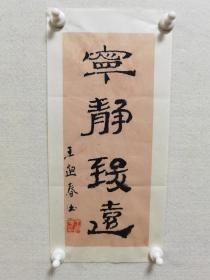 寧靜致遠
王迎春书